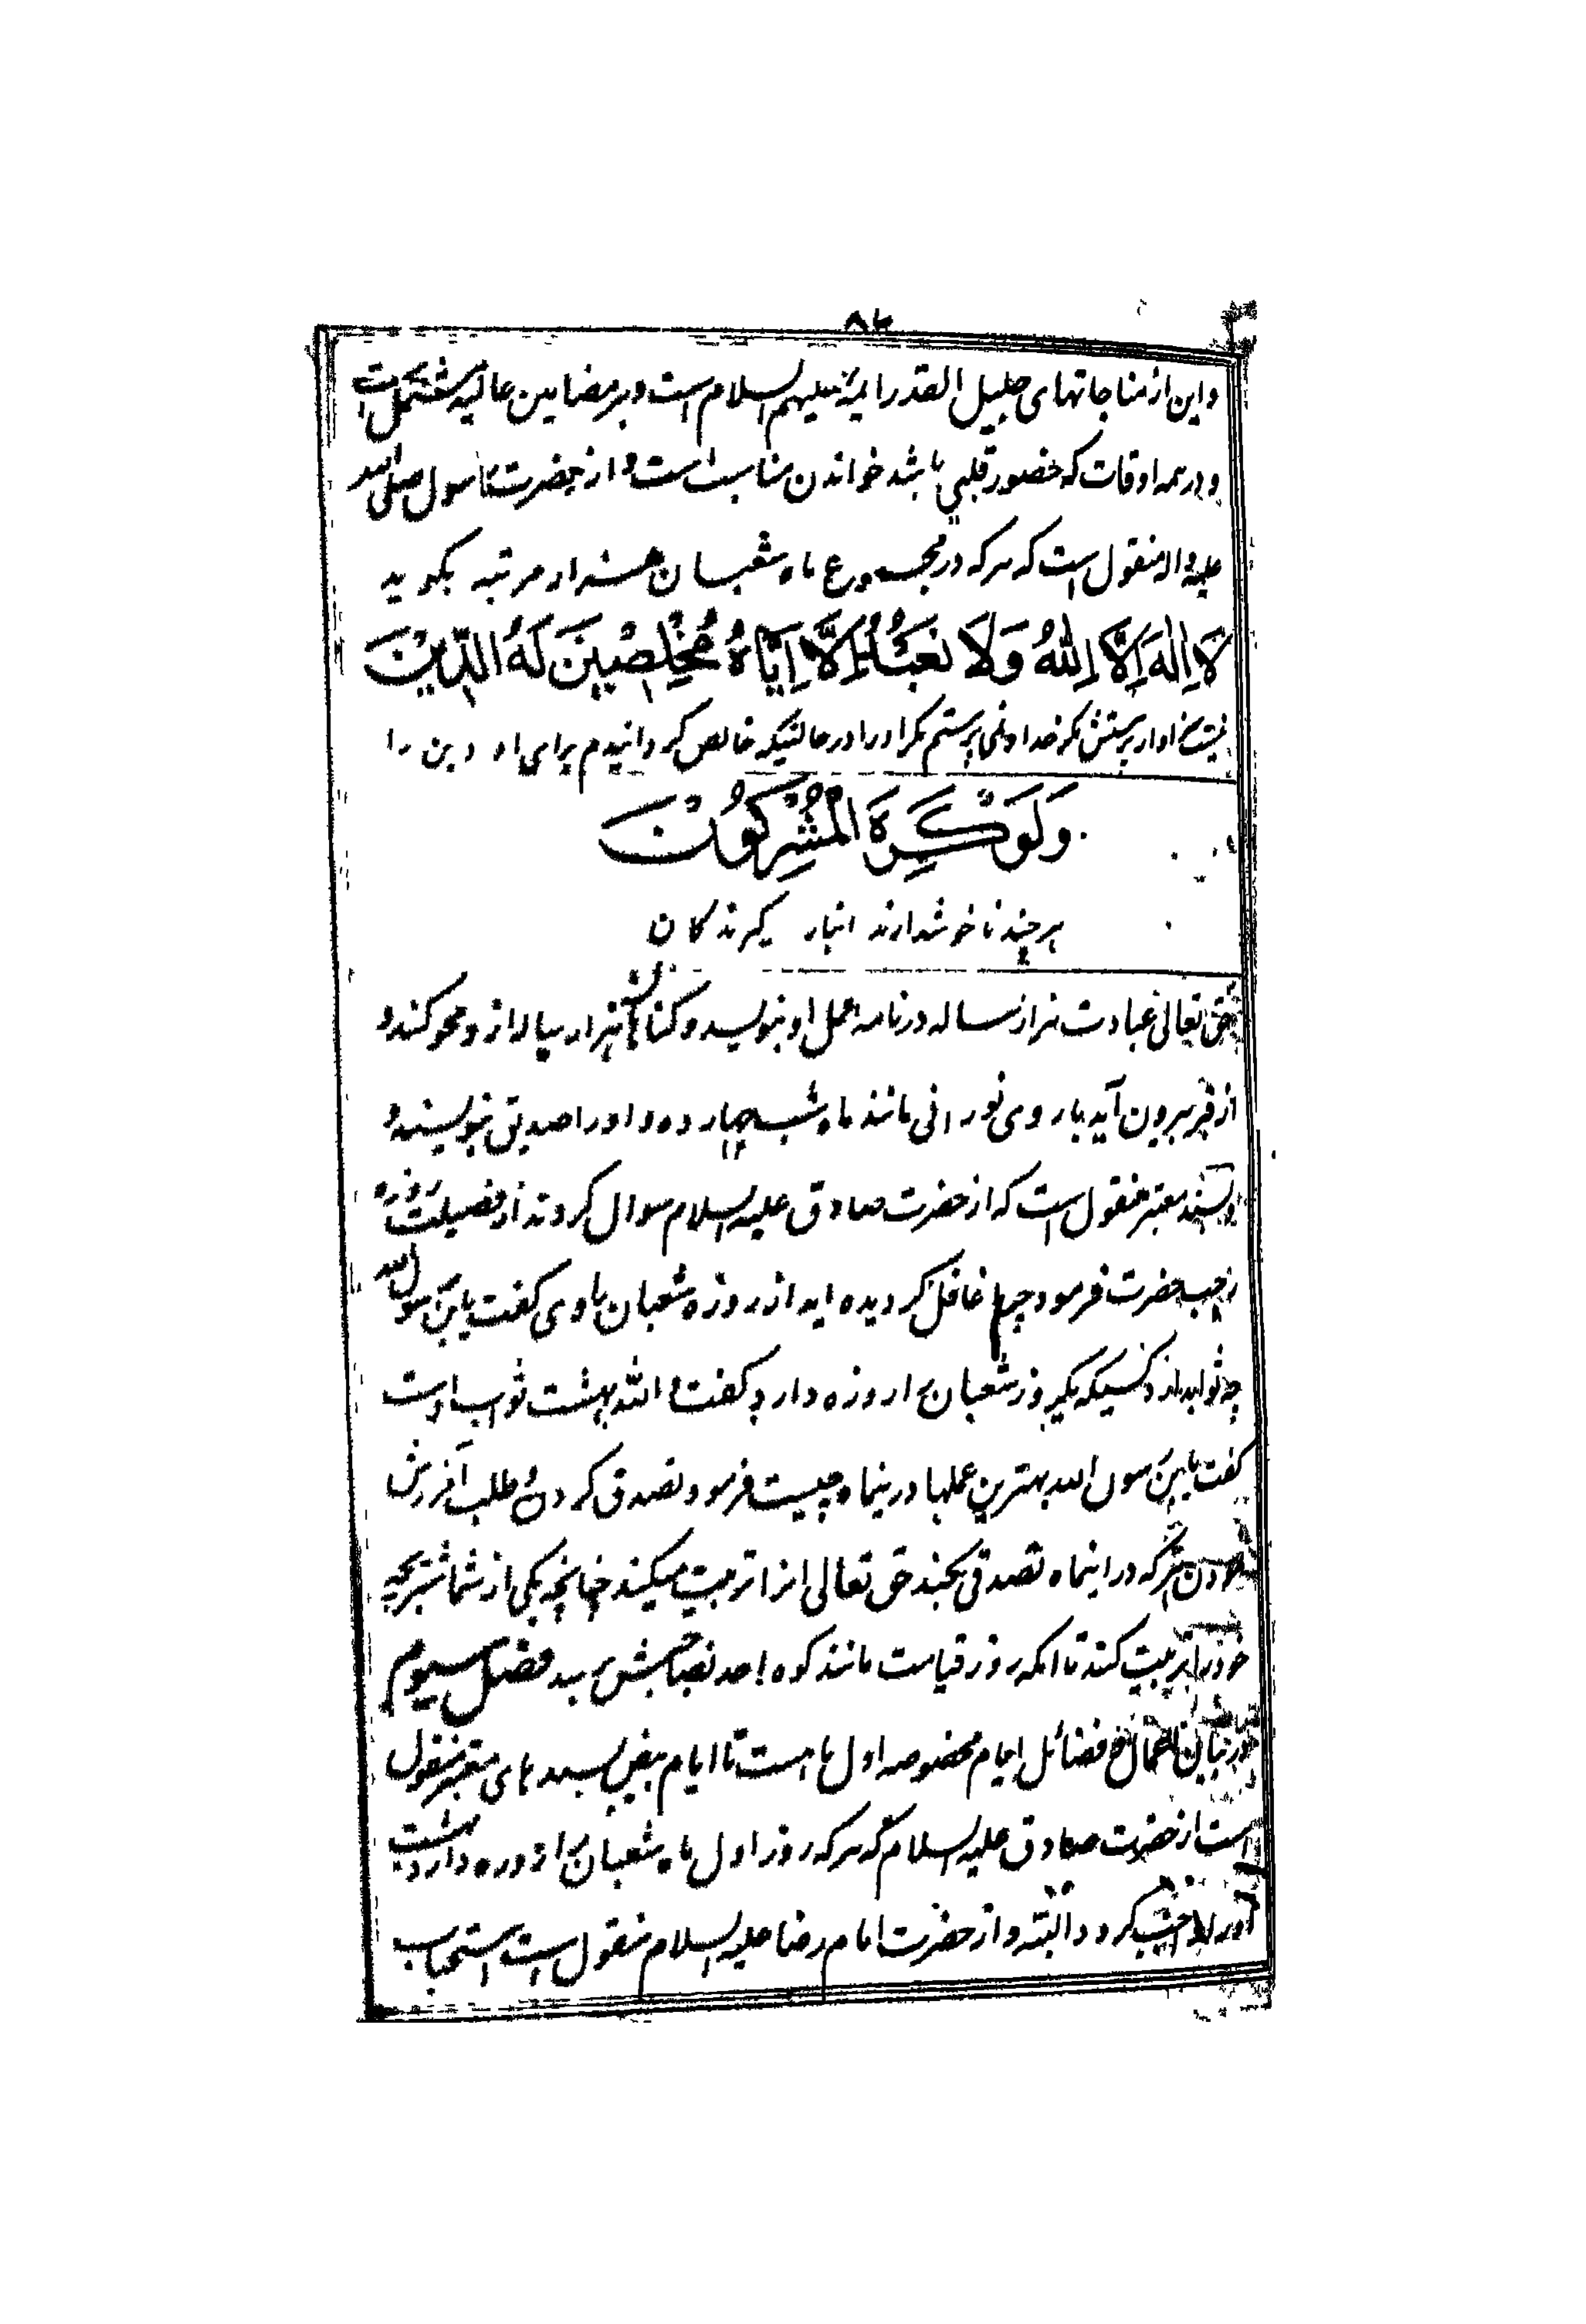 ۸۴
و این از مناجاتهای جلیل القدر ایمه علیهم السلام است و بر مضامین عالیه مشتمل است
و در همه اوقات که حضور قلبی باشد خواندن مناسب است و از حضرت رسول صلی الله
علیه و اله منقول است که هر که در مجموع ماه شعبان هزار مرتبه بگوید
لَا اِلٰهَ اِلَّا اللهُ وَلَا نَعْبُدُ اِلَّا اِیَّاهُ مُخْلِصِیْنَ لَهُ الدِّیْنَ
نیست سزاوار پرستش مگر خدا و نمی پرستم مگر او را در حالتیکه خالص گردانیدم برای او دین را
وَلَوْ کَرِهَ الْمُشْرِکُوْنَ
هر چند ناخوش دارند انباز گیرندگان
حق تعالی عبادت هزار ساله در نامه عمل او بنویسد و گناه هزار ساله از او محو کند و
از قبر بیرون آید با روی نورانی مانند ماه شب چهارده و او را صدیق بنویسند و
بسند معتبر منقول است که از حضرت صادق علیه السلام سوال کردند از فضیلت روزه
رجب حضرت فرمود چرا غافل گردیده اید از روزه شعبان راوی گفت یابن رسول الله
چه ثواب دارد کسیکه یکروز شعبان را روزه دارد گفت و الله بهشت ثواب اوست
گفت یابن رسول الله بهترین عملها درینماه چیست فرمود تصدق کردن و طلب آمرزش
نمودن هر که در اینماه تصدقی بکند حق تعالی انرا تربیت میکند چنانچه یکی از شما شتر بچه
خود را تربیت کند تا انکه روز قیامت مانند کوه احد بصاحبش برسد فصل سیوم
در بیان اعمال و فضائل ایام مخصوصه اول ماه است تا ایام بیض بسندهای معتبر منقول
است از حضرت صادق علیه السلام که هر که روز اول ماه شعبان را روزه دارد بهشت
او را واجب گردد البته و از حضرت امام رضا علیه السلام منقول است استحباب